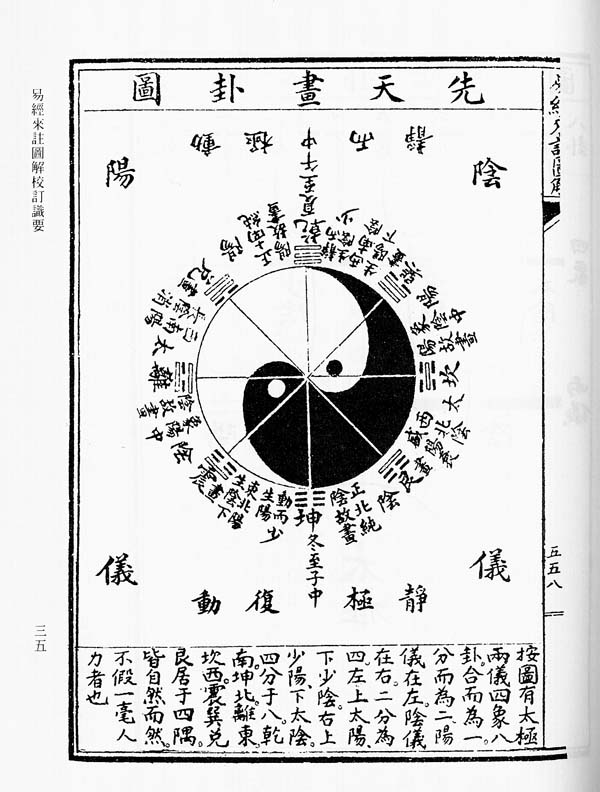 先天畫卦圖
易經來註圖解校訂識要
三五
五五八
陰
儀
陽
儀
動極而靜
乾夏至午中
正南純
陽故畫
兌
太陽
離
震
動而
生陽
少
坤冬至子中
正北純
陰故畫
艮
坎
太陰
靜極復動
按圖有太極
兩儀四象八
卦。合而為一
分而為二。陽
儀在左。陰儀
在右。二分為
四。左上太陽
下少陰。右上
少陽。下太陰。
四分于八。乾
南。坤北。離東。
坎西。震巽兌
艮居于四隅。
皆自然而然。
不假一毫人
力者也